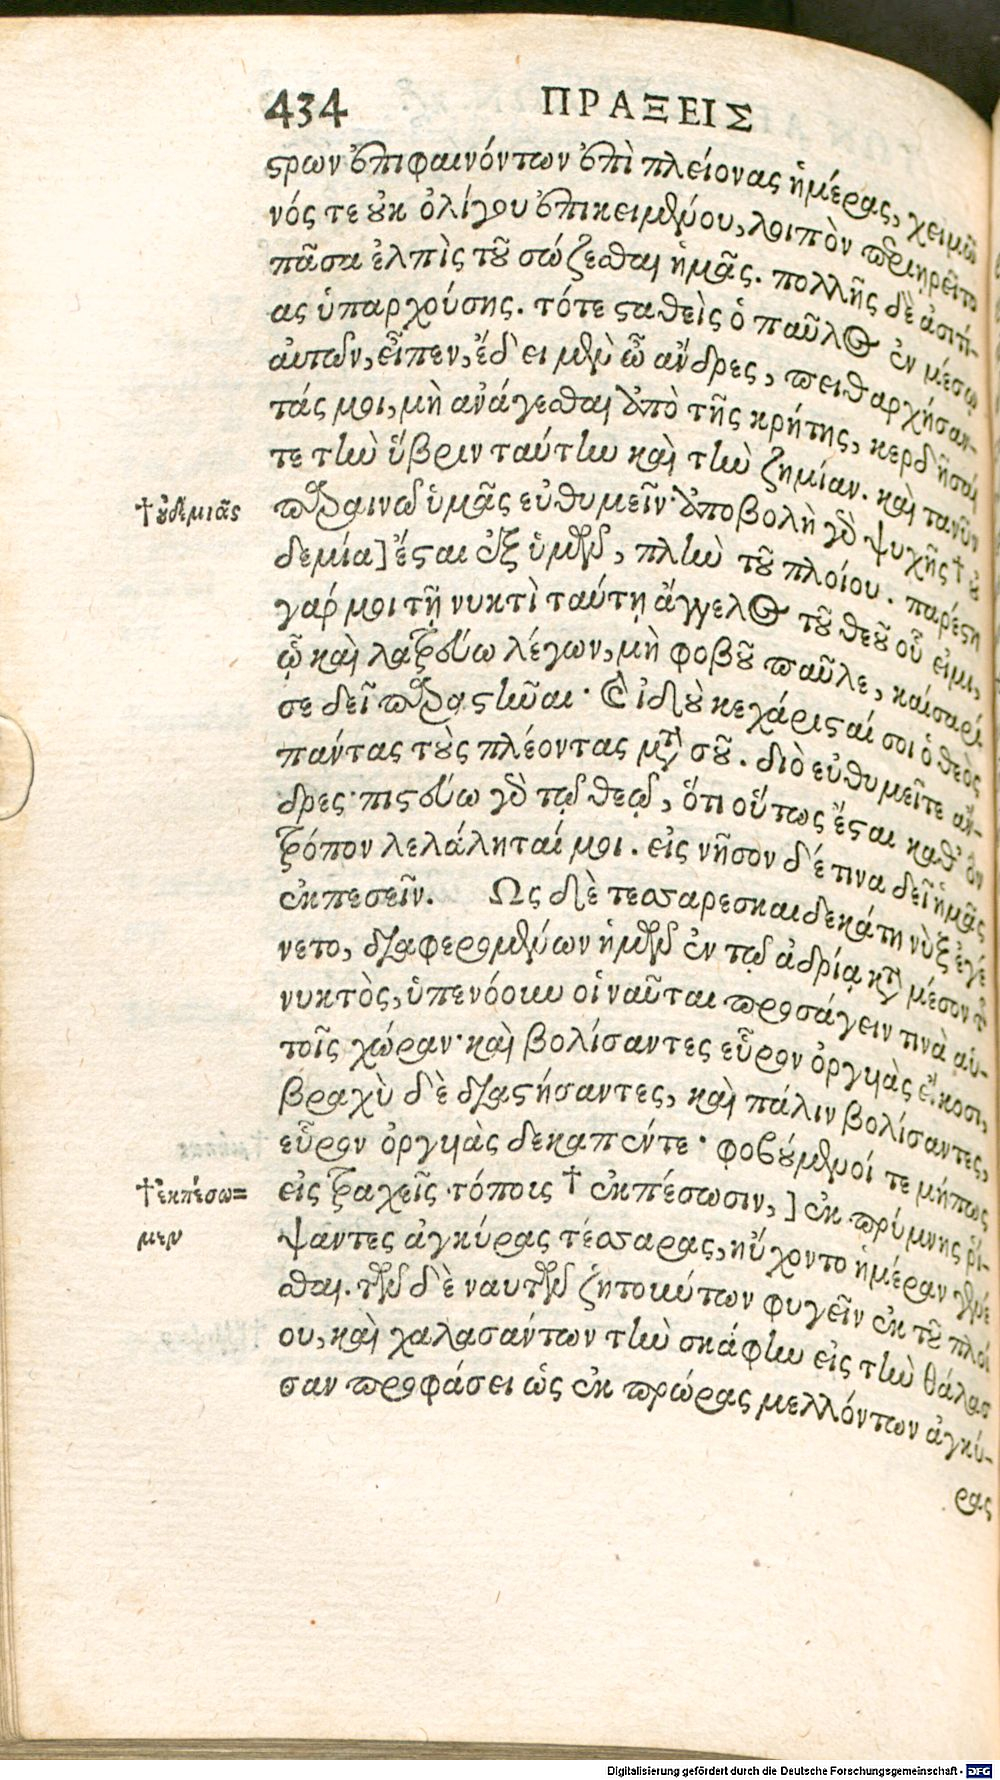 434 ΠΡΑΞΕΙΣ
ϛρων ἐπιφαινόντων ἐπὶ πλείονας ἡμέρας, χειμῶ
νός τε οὐκ ὀλίγου ἐπικειμένου, λοιπὸν περιῃρεῖτο
πᾶσα ἐλπὶς τοῦ σώζεσθαι ἡμᾶς. πολλῆς δὲ ἀσιτί-
ας ὑπαρχούσης. τότε ϛαθεὶς ὁ παῦλος ἐν μέσῳ
αὐτῶν, εἶπεν, ἔδει μὲν ὦ ἄνδρες, πειθαρχήσαν-
τάς μοι, μὴ ἀνάγεσθαι ἀπὸ τῆς κρήτης, κερδῆσαί
τε τὴν ὕβριν ταύτην καὶ τὴν ζημίαν. καὶ τανῦν
παραινῶ ὑμᾶς εὐθυμεῖν· ἀποβολὴ γὰρ ψυχῆς † οὐ
†οὐδεμιᾶς
δεμία] ἔϛαι ἐξ ὑμῶν, πλὴν τοῦ πλοίου. παρέϛη
γάρ μοι τῇ νυκτὶ ταύτῃ ἄγγελος τοῦ θεοῦ οὗ εἰμι,
ᾧ καὶ λατρεύω λέγων, μὴ φοβοῦ παῦλε, καίσαρί
σε δεῖ παραϛῆναι· καὶ ἰδοὺ κεχάριϛαί σοι ὁ θεὸς
πάντας τοὺς πλέοντας μετὰ σοῦ. διὸ εὐθυμεῖτε ἄν-
δρες· πιϛεύω γὰρ τῷ θεῷ, ὅτι οὕτως ἔϛαι καθ᾽ ὃν
τρόπον λελάληταί μοι. εἰς νῆσον δέ τινα δεῖ ἡμᾶς
ἐκπεσεῖν. Ως δὲ τεσσαρεσκαιδεκάτη νὺξ ἐγέ
νετο, διαφερομένων ἡμῶν ἐν τῷ ἀδρίᾳ κατὰ μέσον τῆς
νυκτὸς, ὑπενόουν οἱ ναῦται προσάγειν τινὰ αὐ-
τοῖς χώραν· καὶ βολίσαντες εὗρον ὀργυιὰς εἴκοσι,
βραχὺ δὲ διαϛήσαντες, καὶ πάλιν βολίσαντες,
εὗρον ὀργυιὰς δεκαπέντε· φοβούμενοί τε μήπως
εἰς τραχεῖς τόποις † ἐκπέσωσιν, ] ἐκ πρύμνης ῥί-
†ἐκπέσω=
μεν
ψαντες ἀγκύρας τέσσαρας, ηὔχοντο ἡμέραν γενέ
σθαι. τῶν δὲ ναυτῶν ζητούντων φυγεῖν ἐκ τοῦ πλοί
ου, καὶ χαλασάντων τὴν σκάφην εἰς τὴν θάλασ
σαν προφάσει ὡς ἐκ πρώρας μελλόντων ἀγκύ-
ρας
Digitalisierung gefördert durch die Deutsche Forschungsgemeinschaft - DFG